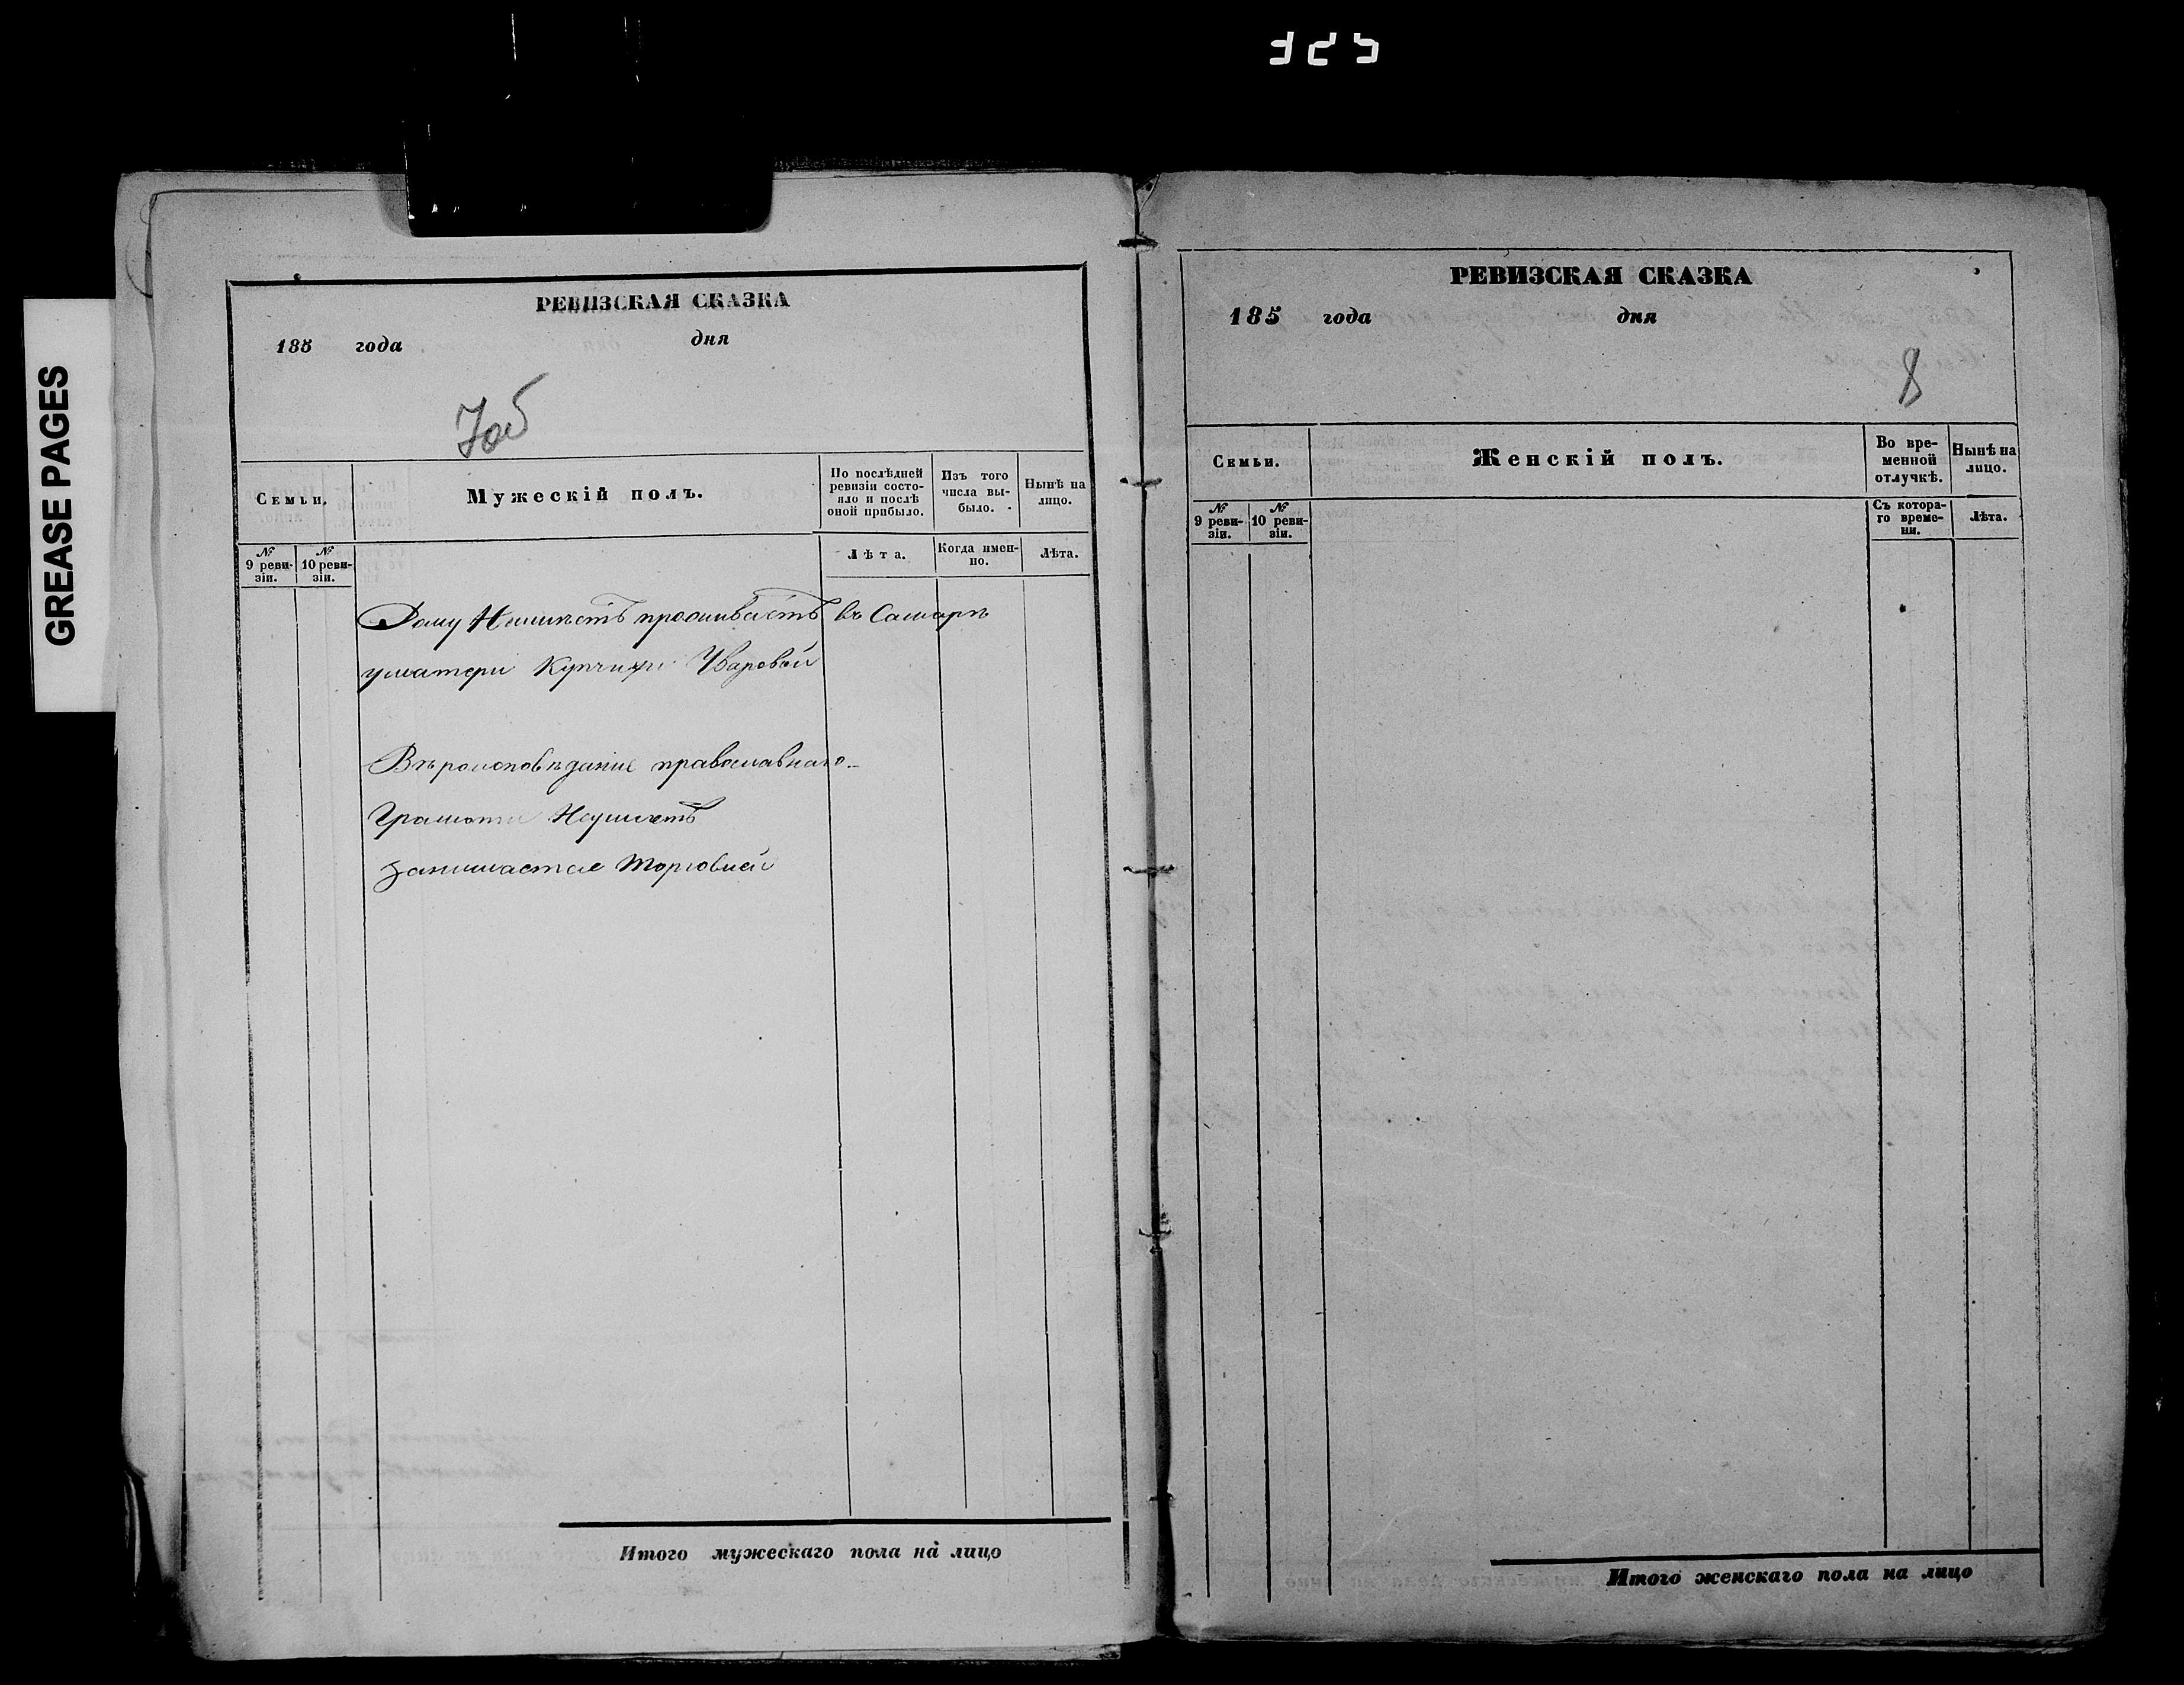 325
GREASE PAGES
РЕВИЗСКАЯ СКАЗКА
185 года дня
Семьи.
Мужескій полъ.
По послѣдней ревизіи состояло и послѣ оной прибыло.
Изъ того числа выбыло.
Нынѣ на лицо.
№ 9 ревизіи.
№ 10 ревизіи.
Лѣта.
Когда именно.
Лѣта.
Дому Неимѣетъ проживаетъ въ Самарѣ
уматери Купчихи Уваровой
Вѣроисповѣдание православнаго
Грамоти Неумѣетъ
Занимается торговлей
Итого мужескаго пола на лицо
РЕВИЗСКАЯ СКАЗКА
185 года дня
8
Семьи.
Женскій полъ.
Во временной отлучкѣ.
Нынѣ на лицо.
№ 9 ревизіи.
№ 10 ревизіи.
Съ котораго времени.
Лѣта.
Итого женскаго пола на лицо